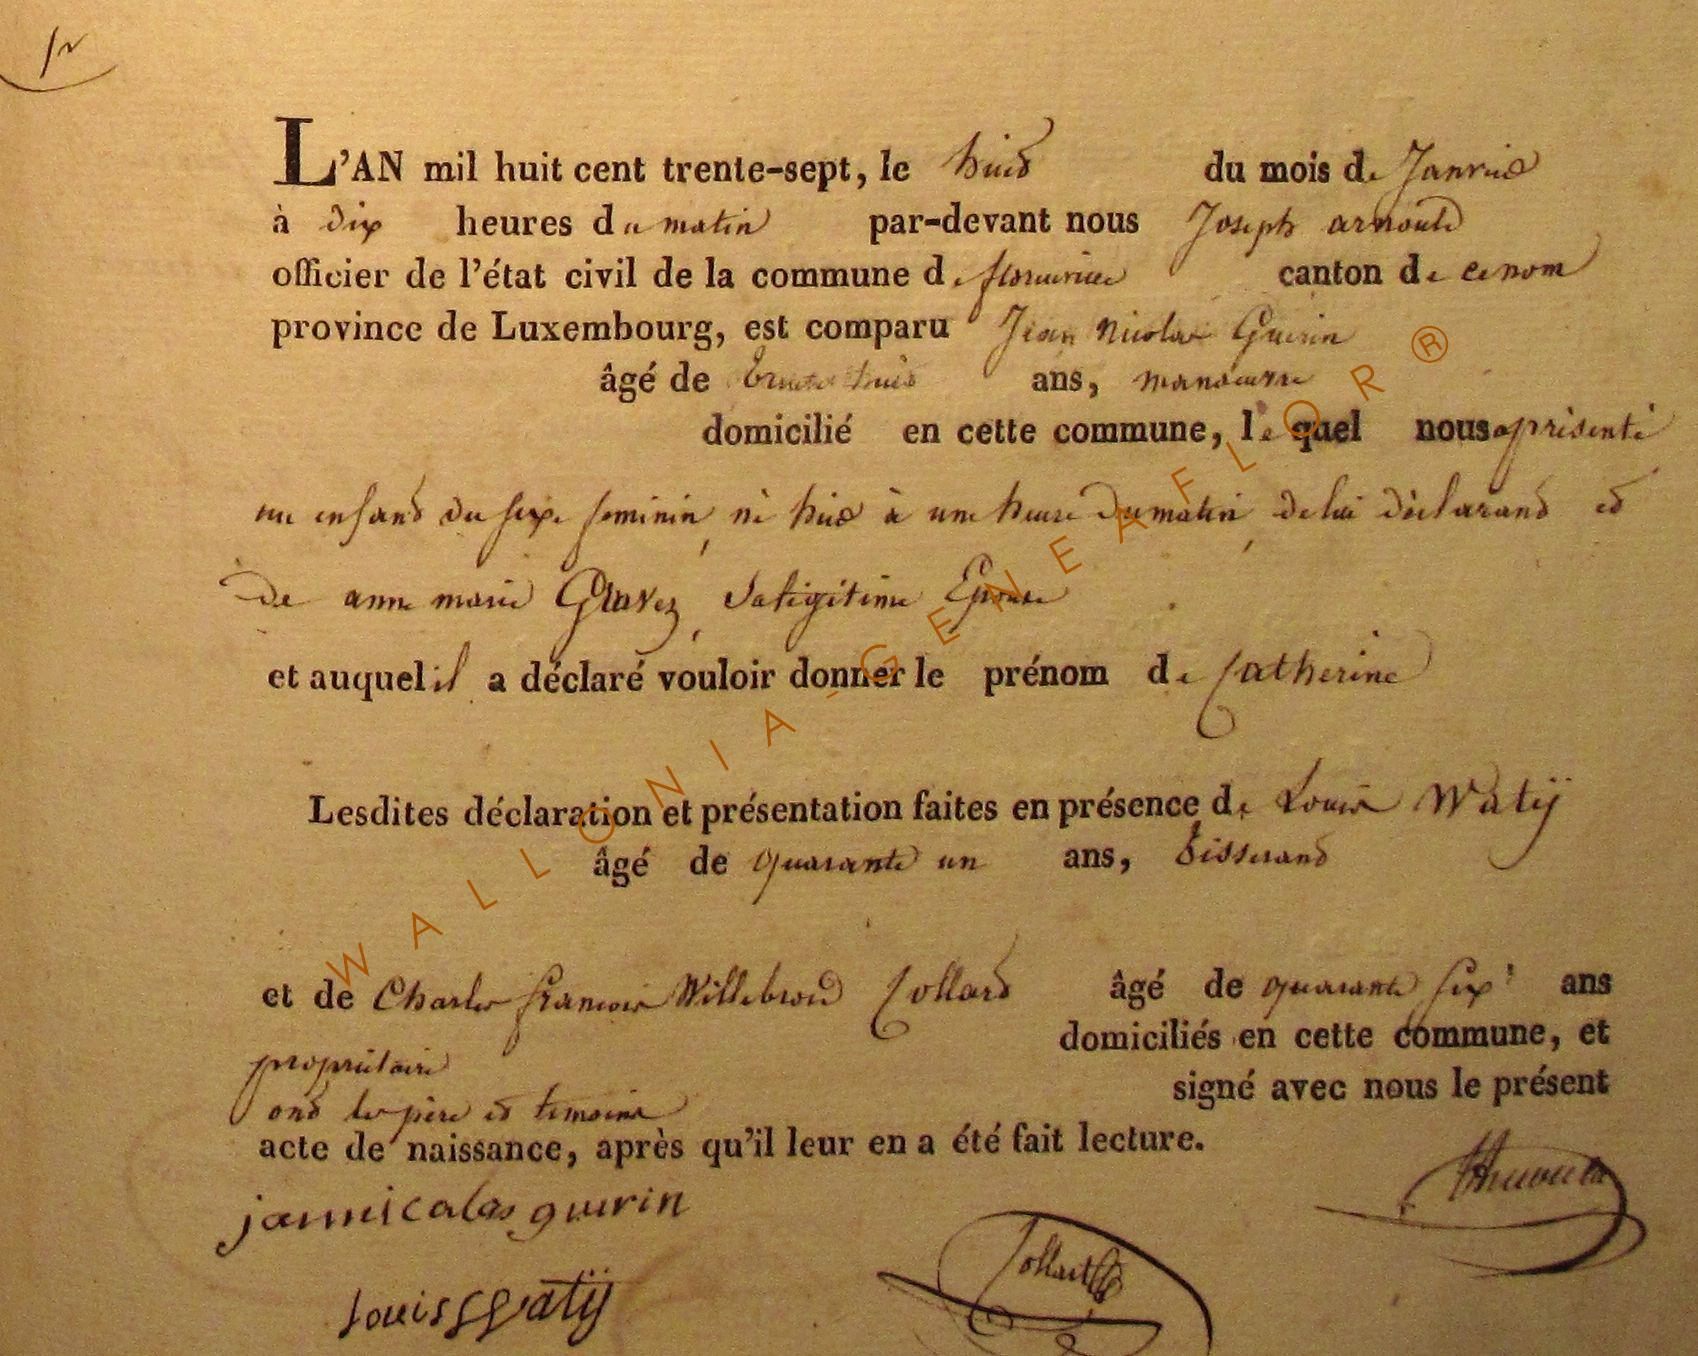 L'AN mil huit cent trente-sept, le huit du mois de Janvier
à dix heures du matin par-devant nous Joseph arnould
officier de l'état civil de la commune de florenville canton de ce nom
province de Luxembourg, est comparu Jean Nicolas Guerin
âgé de trente huit ans, manoeuvre
domicilié en cette commune, lequel nous a présenté
un enfant du sexe feminin, né hier à une heure du matin, de lui déclarant et
de anne marie Gravez, sa légitime Epouse
et auquel il a déclaré vouloir donner le prénom de Catherine
Lesdites déclaration et présentation faites en présence de Louis Watÿ
âgé de quarante un ans, tisserand
et de Charles francois Willebrord Collard âgé de quarante six ans
propriétaire domiciliés en cette commune, et
ont les père et temoins signé avec nous le présent
acte de naissance, après qu'il leur en a été fait lecture.
jannicalas guerin
Collard
louis Watÿ
WALLONIA-GENEAFLOR®